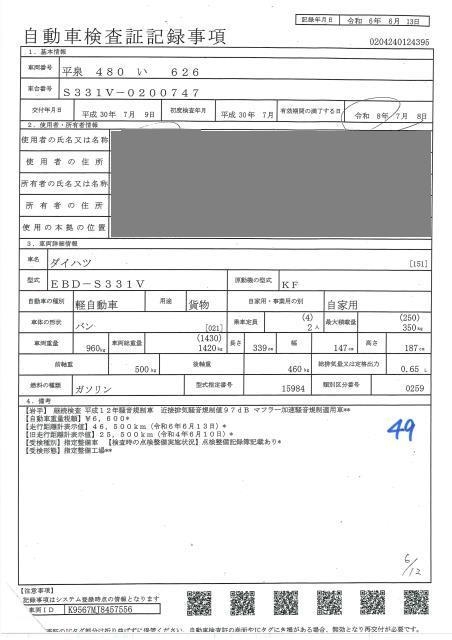 記録年月日 令和 6年 6月 13日
自動車検査証記録事項
0204240124395
1. 基本情報
車両番号 平泉 480 い 626
車台番号 S331V-0200747
交付年月日 平成30年 7月 9日 初度検査年月 平成30年 7月 有効期間の満了する日 令和 8年 7月 8日
2. 使用者・所有者情報
使用者の氏名又は名称
使用者の住所
所有者の氏名又は名称
所有者の住所
使用の本拠の位置
3. 車両詳細情報
車名 ダイハツ [151]
型式 EBD-S331V 原動機の型式 KF
自動車の種別 軽自動車 用途 貨物 自家用・事業用の別 自家用
車体の形状 バン [021] 乗車定員 (4) 2人 最大積載量 (250) 350kg
車両重量 960kg 車両総重量 (1430) 1420kg 長さ 339cm 幅 147cm 高さ 187cm
前軸重 500kg 後軸重 460kg 総排気量又は定格出力 0.65 L
燃料の種類 ガソリン 型式指定番号 15984 類別区分番号 0259
4. 備考
【岩手】 継続検査 平成12年騒音規制車 近接排気騒音規制値97dB マフラー加速騒音規制適用車**
【自動車重量税額】 ¥6,600*
【走行距離計表示値】46,500km(令和6年6月13日)*
【旧走行距離計表示値】25,500km(令和4年6月10日)*
【受検種別】指定整備車 【検査時の点検整備実施状況】点検整備記録簿記載あり*
【受検形態】指定整備工場**
49
6/12
【注意事項】
記録事項はシステム登録時点の情報となります
車両ID K9567MJ8457556